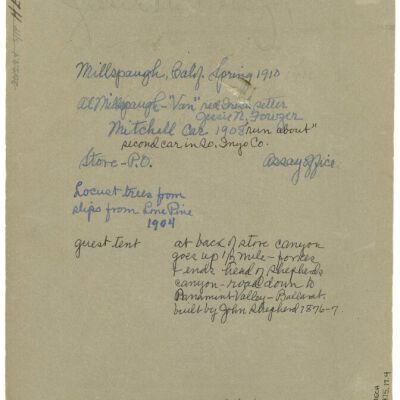 Millspaugh, Calif. Spring 1910
At Millspaugh - "Van" red Irish setter
Jessie N. Fowzer
Mitchell Car 1908 "run about"
second car in So. Inyo Co.
Store - P.O. Assay Office
Locust trees from
slips from Lone Pine
1904
guest tent at back of store canyon
goes up ½ mile - forks
& ends head of Shepherds
canyon - road down to
Panamint Valley - Ballarat.
built by John Shepherd 1876-7.